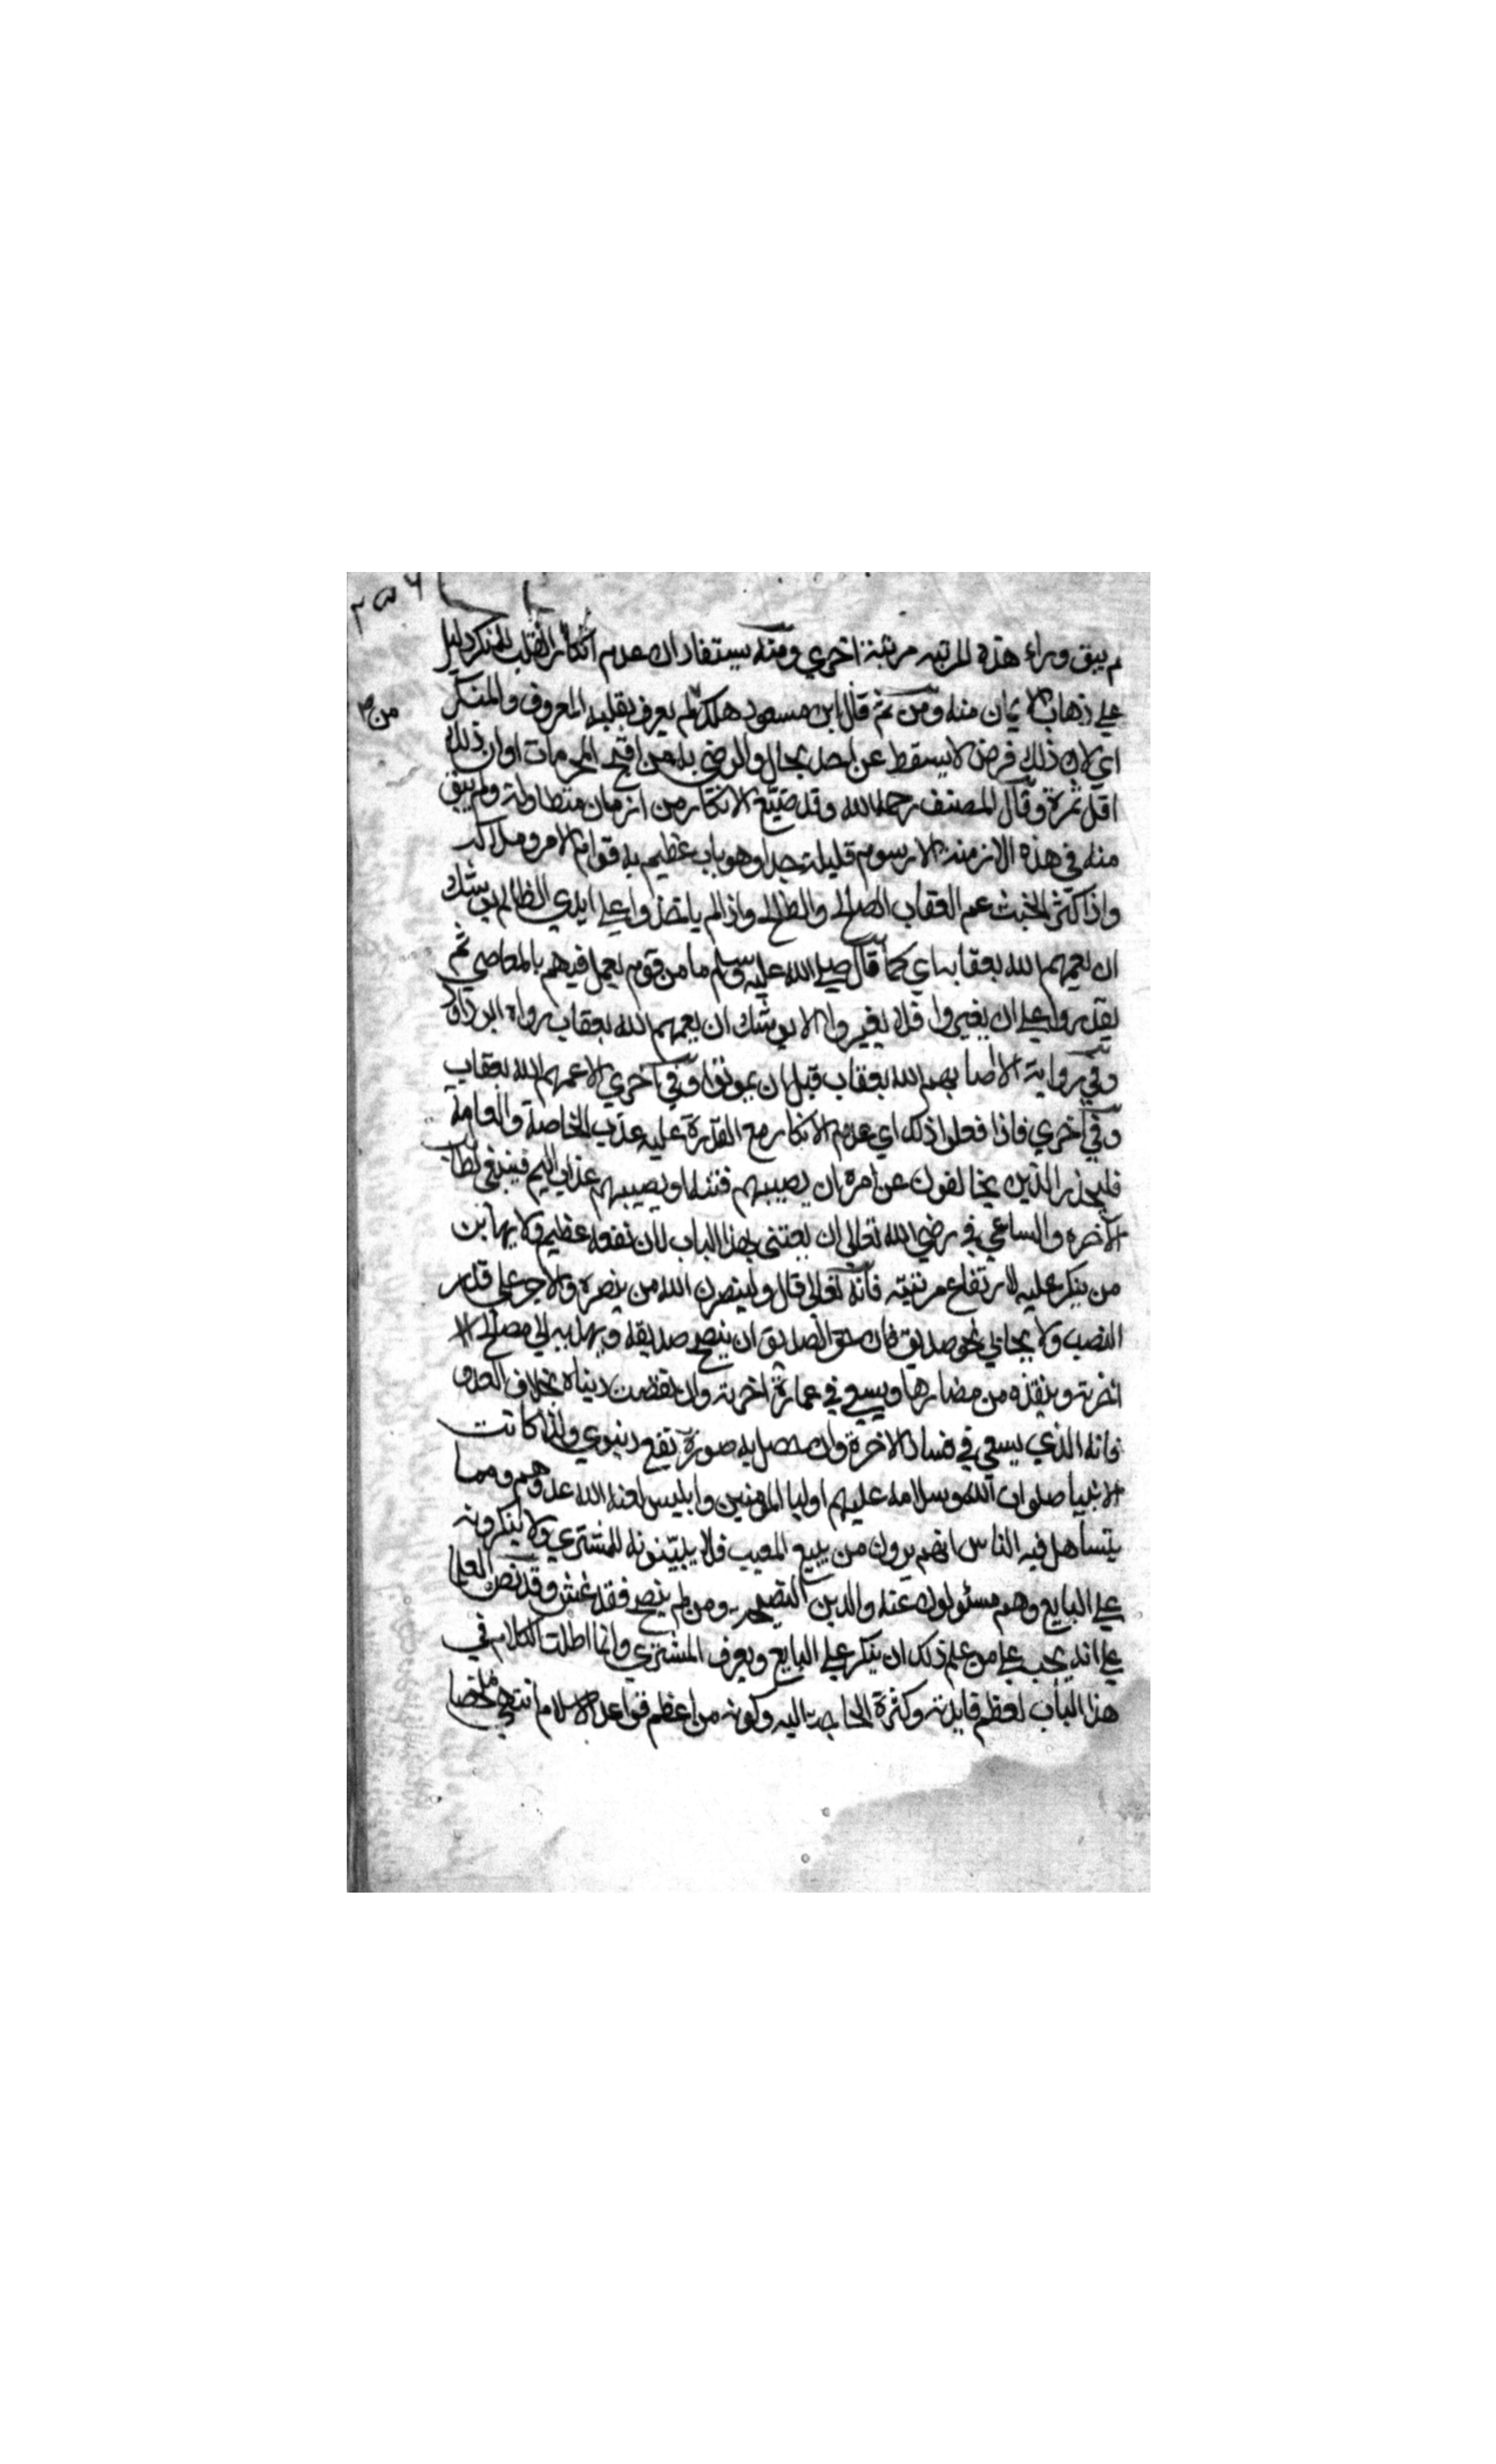 لم يبق وراء هذه المرتبه مرتبة اخري ومنه يستفاد ان عدم انكار القلب للمنكر دليل
علي ذهاب الايمان منه ومن ثم قال ابن مسعود هلك لم يعرف بقلبه المعروف والمنكر
من
اي لان ذلك فرض لا يسقط عن احد بحال والرضي به من اقبح المحرمات او ان ذلك
اقل ثمرة وقال المصنف رحمه الله وقد ضيع الانكار من ازمان متطاولة ولم يبق
منه في هذه الازمنة الا رسوم قليلة جدا وهو باب عظيم به قوام الامر وملاكه
واذا كثر الخبث عم العقاب الصالح والطالح واذا لم ياخذوا علي ايدي الظالم يوشك
ان يعمهم الله بعقابه اي كما قال صلي الله عليه وسلم ما من قوم يعمل فيهم بالمعاصي ثم
يقدروا علي ان يغيروا فلا يغيروا الا يوشك ان يعمهم الله بعقاب رواه ابو داود
وفي رواية الا اصابهم الله بعقاب قبل ان يموتوا وفي اخري الا عمهم الله بعقاب
وفي اخري فاذا فعلوا ذلك اي عدم الانكار مع القدرة عليه عذب الخاصة والعامة
فليحذر الذين يخالفون عن امره ان يصيبهم فتنة او يصيبهم عذاب اليم فينبغي لطالب
الآخره والساعي في رضي الله تعالي ان يعتني بهذا الباب لان نفعه عظيم ولا يهابن
من ينكر عليه لارتفاع مرتبته فانه تعالي قال ولينصرن الله من ينصره والاجر علي قدر
النصب ولا يحابي نحو صديق فان حق الصديق ان ينصح صديقه ويهديه الي مصالح
اخرته وينقذه من مضارها ويسعي في عمارة اخرته وان نقصت دنياه بخلاف العدو
فانه الذي يسعي في فساد الاخرة وان حصل به صورة نفع دنيوي ولذا كانت
الانبيا صلوات الله وسلامه عليهم اوليا المؤمنين وابليس لعنه الله عدوهم ومما
يتساهل فيه الناس انهم يرون من يبيع المعيب فلا يبينونه للمشتري ولا ينكرونه
علي البايع وهم مسئولون عنه والدين النصيحه ومن لم ينصح فقد غش وقد نص العلما
علي انه يجب علي من علم ذلك ان ينكر علي البايع ويعرف المشتري وانما اطلت الكلام في
هذا الباب لعظم فايدته وكثرة الحاجة اليه وكونه من اعظم قواعد الاسلام انتهي ملخصا